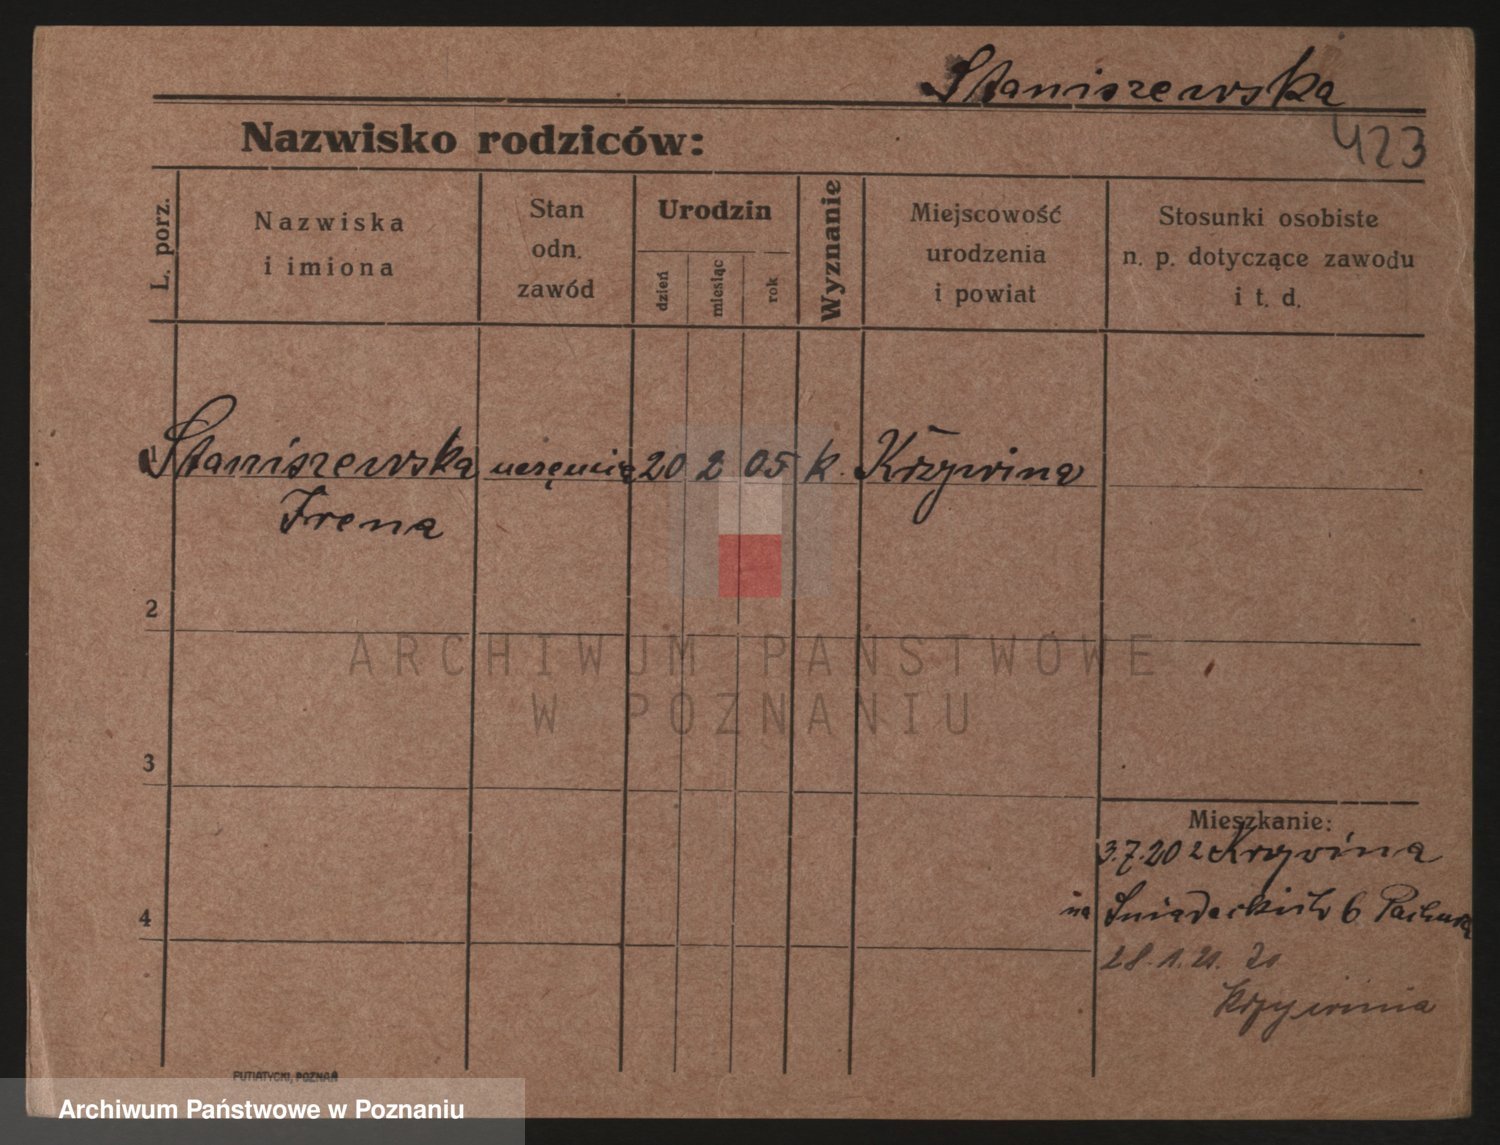 Staniszewska
423
Nazwisko rodziców:
L. porz.
Nazwiska
i imiona
Stan
odn.
zawód
Urodzin
dzień
miesiąc
rok
Wyznanie
Miejscowość
urodzenia
i powiat
Stosunki osobiste
n. p. dotyczące zawodu
i t. d.
Staniszewska uczęnica 20 2 05 k. Krzywina
Irena
2
ARCHIWUM PAŃSTWOWE
W POZNANIU
3
Mieszkanie:
3.7.20 z Krzywina
na Śniadeckich 6
4
28.1.21.
Krzywinia
PUTIATYCKI, POZNAŃ
Archiwum Państwowe w Poznaniu